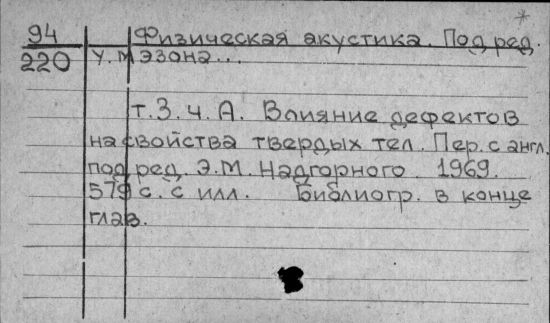 94 Физическая акустика. Под ред.
220 У. Мэзона...
т. 3. ч. А. Влияние дефектов
на свойства твердых тел. Пер. с англ.
под ред. Э.М. Надгорного. 1969.
579 с. с илл. Библиогр. в конце
глав.